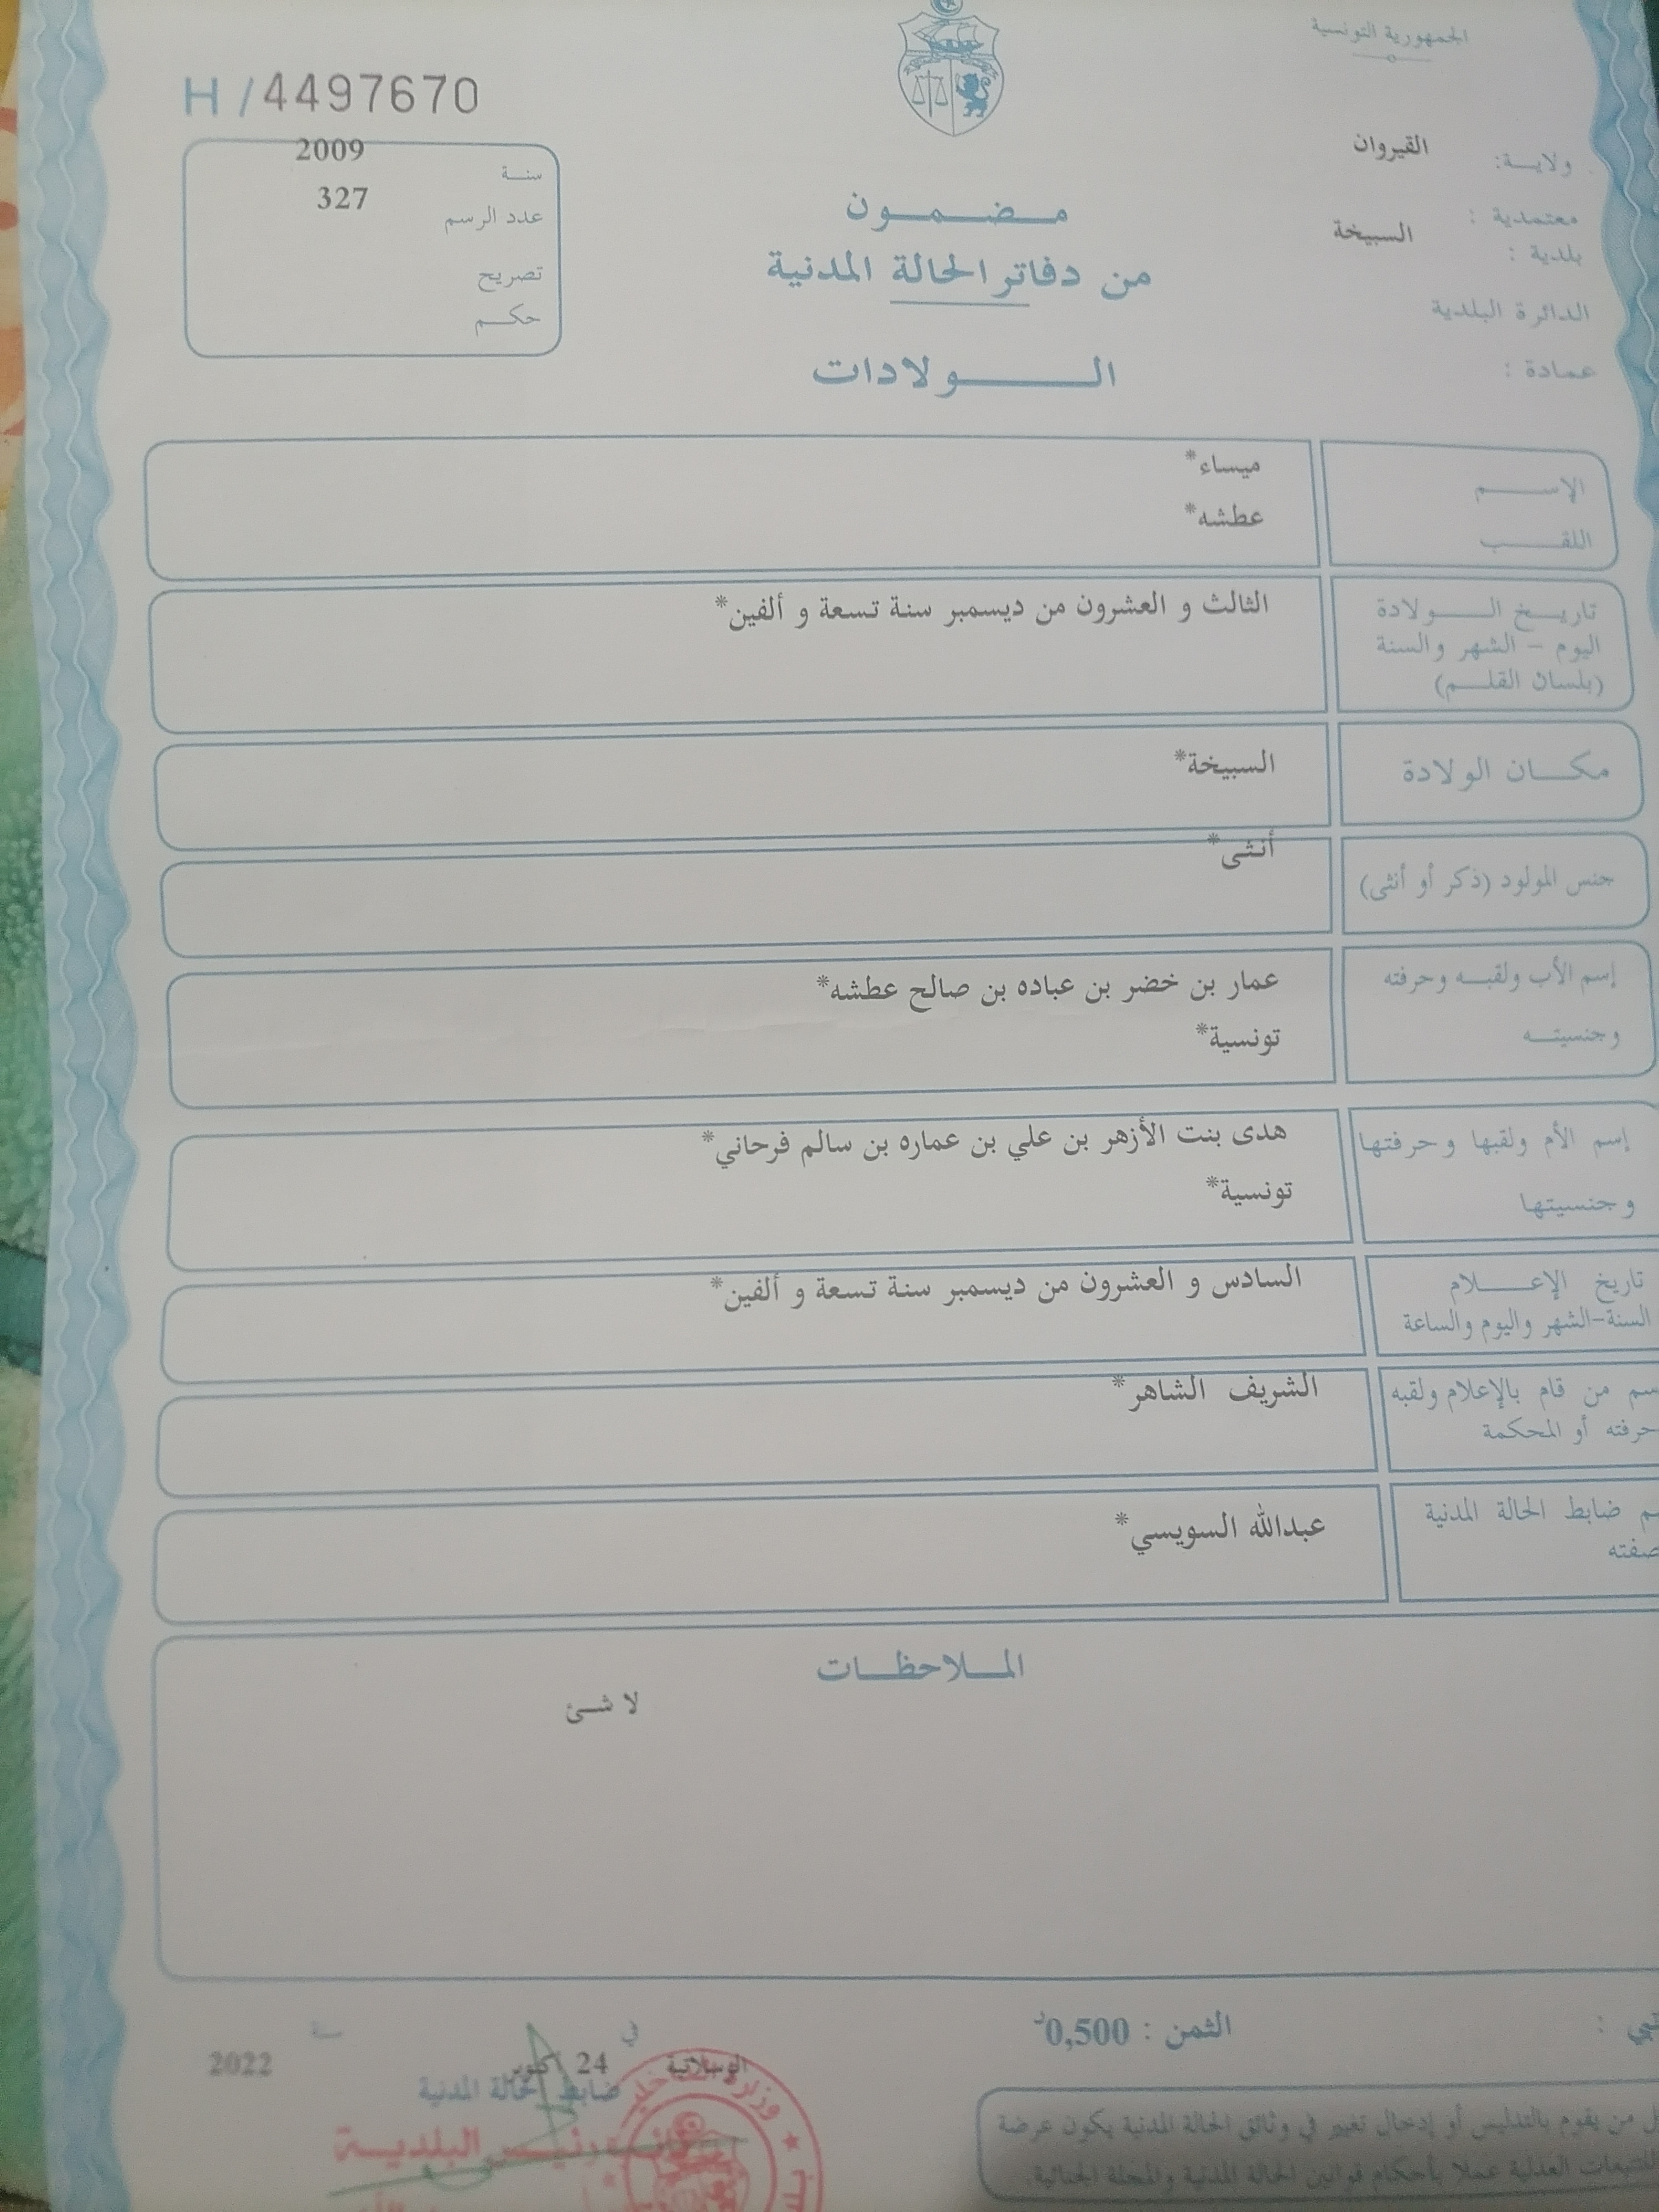 الجمهورية التونسية
H / 4497670
ولاية: القيروان
معتمدية :
بلدية : السبيخة
الدائرة البلدية
عمادة :
سنة 2009
عدد الرسم 327
تصريح
حكم
مضمون
من دفاتر الحالة المدنية
الولادات
الإسم ميساء*
اللقب عطشه*
تاريخ الولادة الثالث و العشرون من ديسمبر سنة تسعة و ألفين*
اليوم - الشهر والسنة
(بلسان القلم)
مكان الولادة السبيخة*
جنس المولود (ذكر أو أنثى) أنثى*
إسم الأب ولقبه وحرفته عمار بن خضر بن عباده بن صالح عطشه*
وجنسيته تونسية*
إسم الأم ولقبها وحرفتها هدى بنت الأزهر بن علي بن عماره بن سالم فرحاني*
وجنسيتها تونسية*
تاريخ الإعلام السادس و العشرون من ديسمبر سنة تسعة و ألفين*
السنة-الشهر واليوم والساعة
من قام بالإعلام ولقبه الشريف الشاهر*
حرفته أو المحكمة
ضابط الحالة المدنية عبدالله السويسي*
صفته
الملاحظات
لا شئ
الثمن : 0,500د
الوسلاتية في 24 أكتوبر سنة 2022
ضابط الحالة المدنية
رئيس البلدية
من يقوم بالتدليس أو إدخال تغيير في وثائق الحالة المدنية يكون عرضة
للتتبعات العدلية عملا بأحكام قوانين الحالة المدنية والمجلة الجنائية.